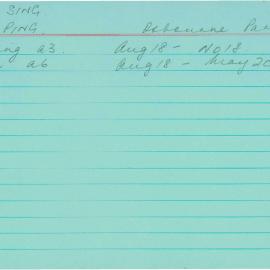 SING
PING. Osbourne Pa
ng a3. Aug 18 - No 18
a6 Aug 18 - May 20